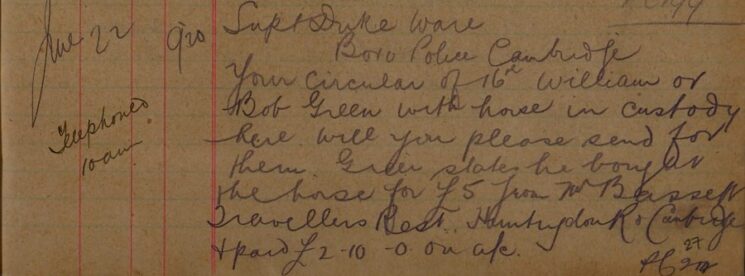 June 22 9/20 Supt Duke Ware
Boro Police Cambridge
Your circular of 16th William or
Bob Green with horse in custody
here will you please send for
them. Green states he bought
the horse for £5 from Mr Bassett
Travellers Rest. Huntingdon Rd Cambridge
& paid £2-10-0 on a/c.
Telephoned
10 am